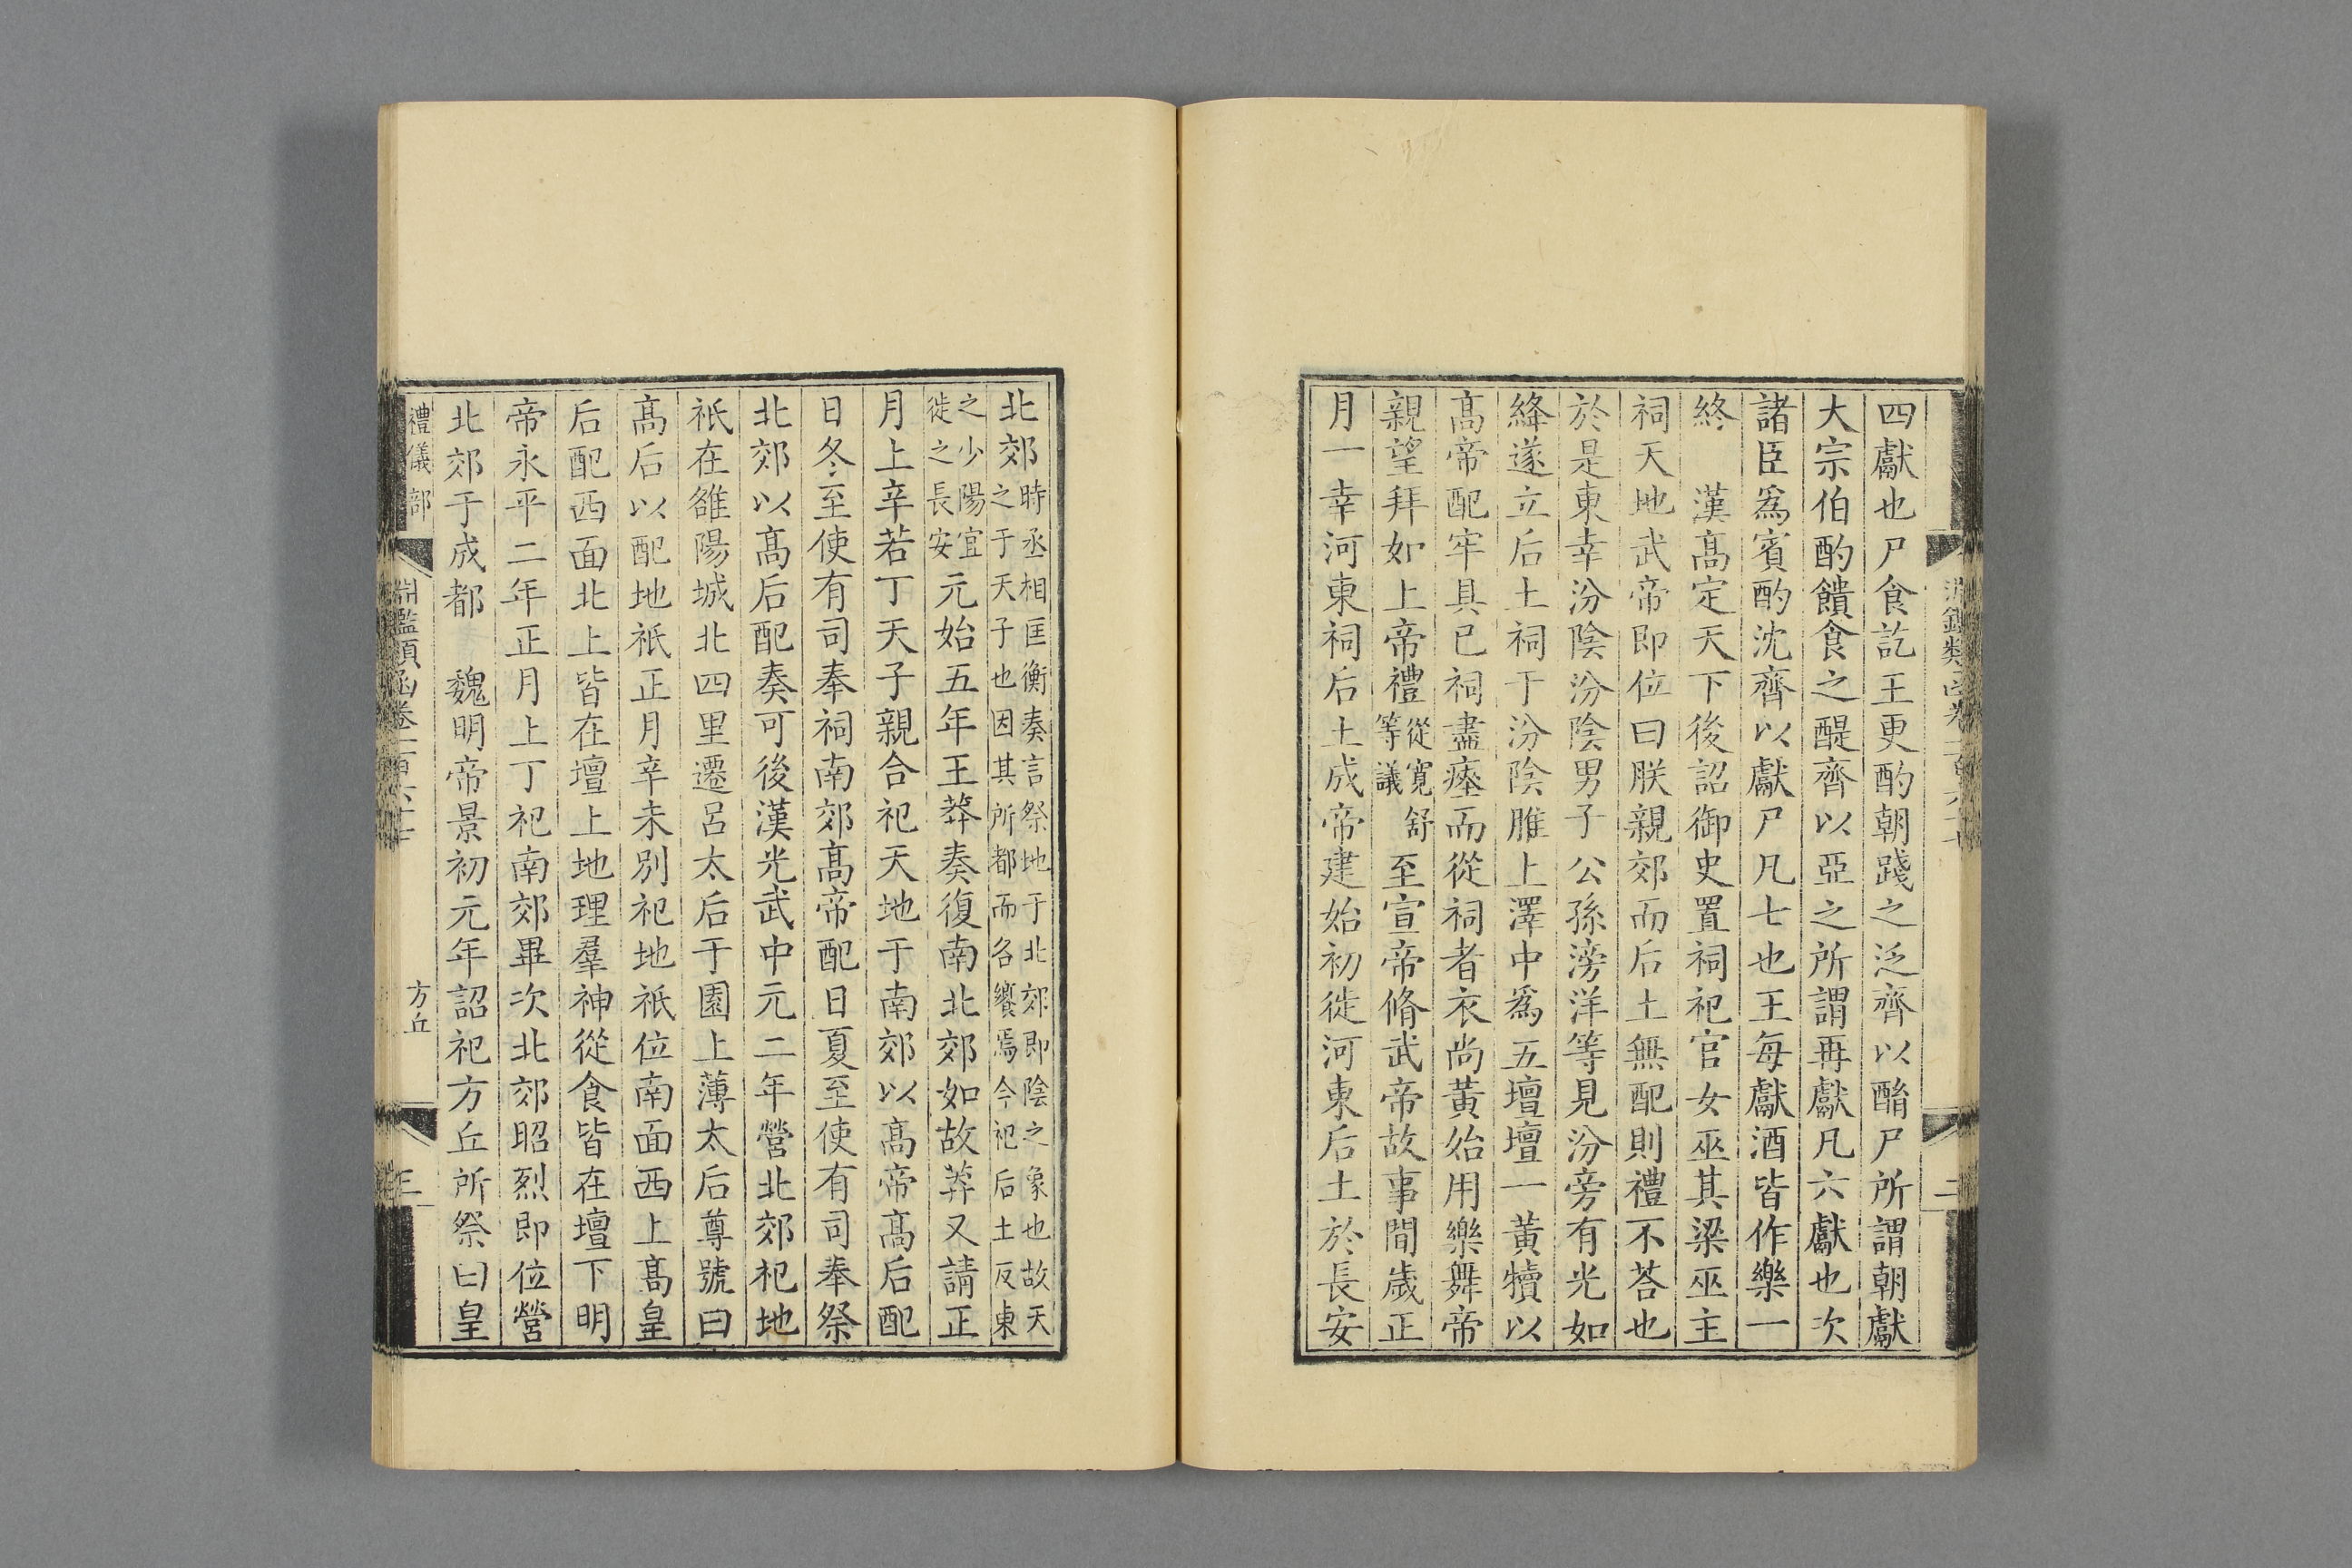 四獻也尸食訖王更酌朝踐之泛齊以酳尸所謂朝獻
大宗伯酌饋食之醍齊以亞之所謂再獻凡六獻也次
諸臣爲賓酌沈齊以獻尸凡七也王每獻酒皆作樂一
終　漢高定天下後詔御史置祠祀官女巫其梁巫主
祠天地武帝即位曰朕親郊而后土無配則禮不荅也
於是東幸汾陰汾陰男子公孫滂洋等見汾旁有光如
絳遂立后土祠于汾陰脽上澤中爲五壇壇一黃犢以
高帝配牢具已祠盡瘞而從祠者衣尚黃始用樂舞帝
親望拜如上帝禮從寬舒等議至宣帝脩武帝故事間歲正
月一幸河東祠后土成帝建始初徙河東后土於長安
北郊時丞相匡衡奏言祭地于北郊即陰之象也故天之于天子也因其所都而各饗焉今祀后土反東
之少陽宜徙之長安元始五年王莽奏復南北郊如故莽又請正
月上辛若丁天子親合祀天地于南郊以高帝高后配
日冬至使有司奉祠南郊高帝配日夏至使有司奉祭
北郊以高后配奏可後漢光武中元二年營北郊祀地
祇在雒陽城北四里遷呂太后于園上薄太后尊號曰
高后以配地祇正月辛未別祀地祇位南面西上高皇
后配西面北上皆在壇上地理羣神從食皆在壇下明
帝永平二年正月上丁祀南郊畢次北郊昭烈即位營
北郊于成都　魏明帝景初元年詔祀方丘所祭曰皇
禮儀部
方丘
三